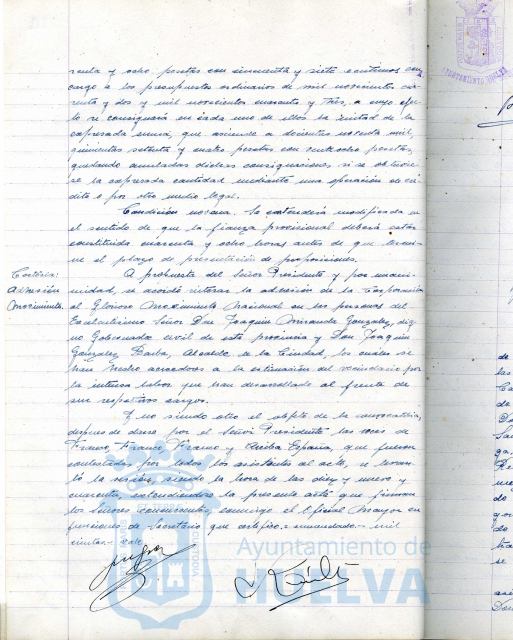 renta y ocho pesetas con cincuenta y siete centimos con
cargo a los presupuestos ordinarios de mil novecientos cua-
renta y dos y mil novecientos cuarenta y tres, a cuyo efec-
to se consignaria en cada uno de ellos la mitad de la
expresada suma, que asciende a doscientas noventa mil
quinientas setenta y cuatro pesetas con
quedando anuladas dichas consignaciones si se obtuvie-
se la expresada cantidad mediante una operación de cré-
dito o por otro medio legal.
Condición novena. Se entenderá modificada en
el sentido de que la fianza provisional deberá estar
constituida cuarenta y ocho horas antes de que termi-
ne el plazo de presentación de proposiciones.
Cortesía:
Adhesión
Movimiento.
A propuesta del Señor Presidente y por unani-
midad, se acordó reiterar la adhesión de la Corporación
al Glorioso Movimiento Nacional en las personas del
Excelentisimo Señor Don Joaquin Miranda Gonzalez, dig-
no Gobernador civil de esta provincia y Don Joaquin
Gonzalez Barba, Alcalde de la Ciudad, los cuales se
han hecho acreedores a la estimación del vecindario por
la intensa labor que han desarrollado al frente de
sus respectivos cargos.
Y no siendo otro el objeto de la convocatoria,
despues de darse por el Señor Presidente las voces de
Franco, Franco, Franco y Arriba España, que fueron
contestadas por todos los asistentes al acto, se levantó
la sesión, siendo la hora de las diez y nueve y
cuarenta, extendiendose la presente acta que firman
los Señores concurrentes, conmigo el Oficial Mayor en
funciones de Secretario que certifico.- enmendado.- mil
vale
AYUNTAMIENTO HUELVA
Ayuntamiento de
HUELVA
de
las
de
se